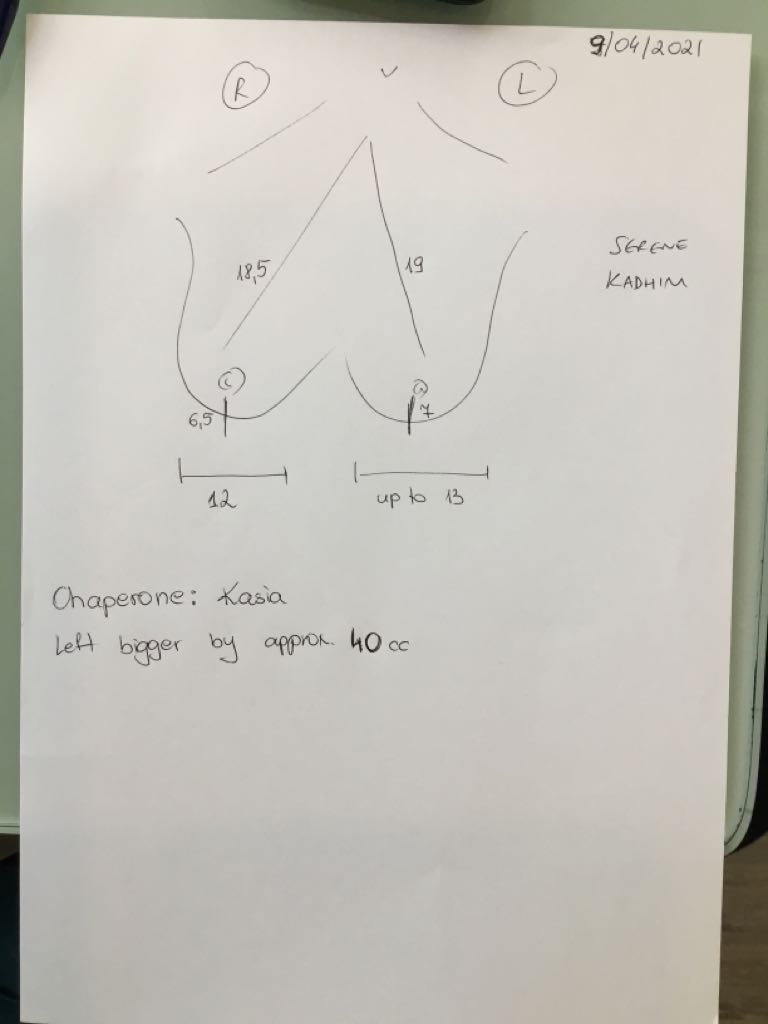 9/04/2021
R
L
SERENE
KADHIM
18,5
19
6,5
7
12
up to 13
Chaperone: Kasia
Left bigger by approx. 40 cc